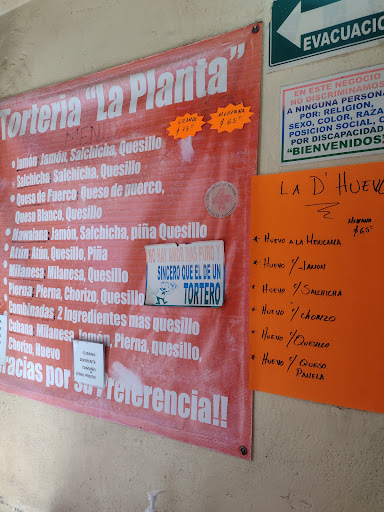 Torteria "La Planta"
GRANDE
$75
MEDIANA
$65
• Jamón: Jamón, Salchicha, Quesillo
Salchicha: Salchicha, Quesillo
• Quesa de Puerco: Queso de puerco,
Queso Blanco, Quesillo
• Hawaiana: Jamón, Salchicha, piña Quesillo
Atún: Atún, Quesillo, Piña
Milanesa: Milanesa, Quesillo
Pierna: Pierna, Chorizo, Quesillo
Combinadas: 2 Ingredientes mas quesillo
Cubana: Milanesa, Jamón, Pierna, quesillo,
Chorizo, Huevo
Gracias por su Preferencia!!
NO HAY AMOR MAS PURO Y
SINCERO QUE EL DE UN
TORTERO
CUBANA
TAMAÑO
EVACUACI
EN ESTE NEGOCIO
NO DISCRIMINAMOS
A NINGUNA PERSONA
POR: RELIGION,
SEXO, COLOR, RAZA
POSICION SOCIAL, O
POR DISCAPACIDAD
"BIENVENIDOS"
LA D' HUEVO
MEDIANA
$65
* HUEVO A LA MEXICANA
* HUEVO C/ JAMON
* HUEVO C/ SALCHICHA
* HUEVO C/ CHORIZO
* HUEVO C/ QUESILLO
* HUEVO C/ QUESO
PANELA